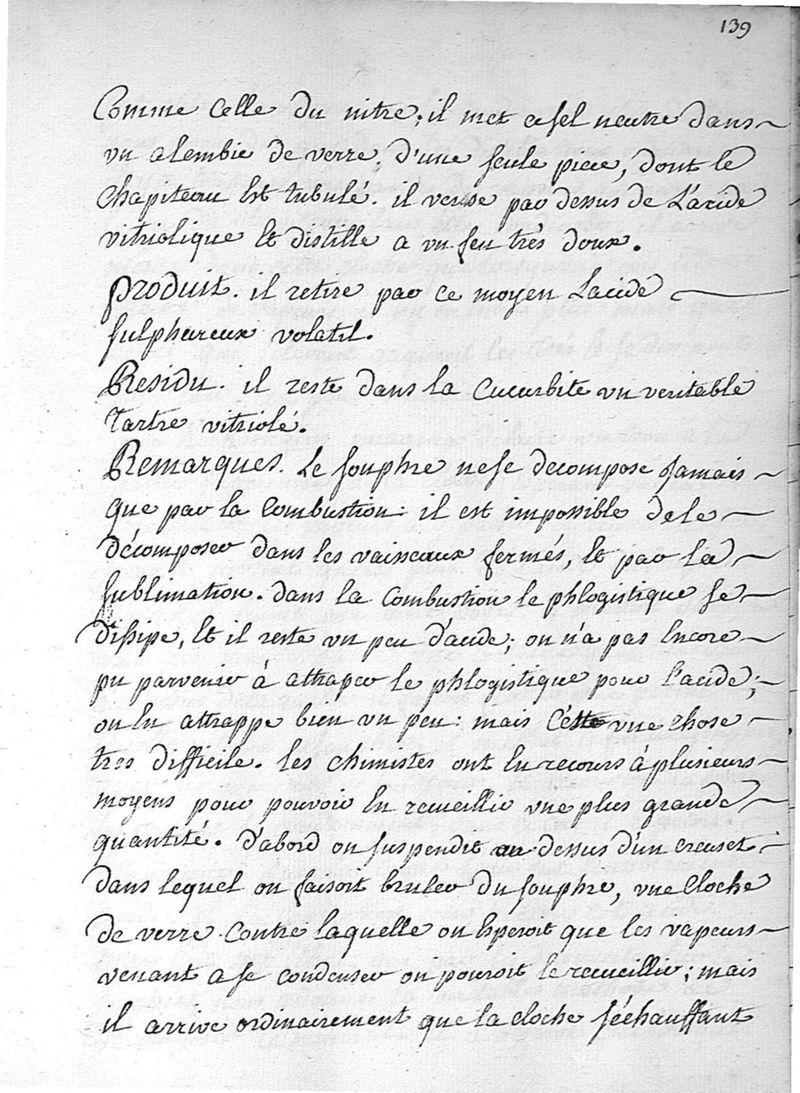 139
Comme celle du nitre; il met ce sel neutre dans
un alembic de verre, d'une seule piece, dont le
chapiteau est tubulé. il verse par dessus de L'acide
vitriolique et distille a un feu très doux.
produit. il retire par ce moyen L'acide
sulphureux volatil.
Residu. il reste dans la Cucurbite un veritable
Tartre vitriolé.
Remarques. Le souphre ne se decompose Jamais
que par la Combustion: il est impossible de le
décomposer dans les vaisseaux fermés, et par la
sublimation. dans la Combustion le phlogistique se
dissipe, et il reste un peu d'acide; on n'a pas encore
pu parvenir à attraper le phlogistique pour l'acide;
on en attrappe bien un peu: mais c'est une chose
tres difficile. les chimistes ont eu recours à plusieurs
moyens pour pouvoir en recueillir une plus grande
quantité. d'abord on suspendit au dessus d'un creuset
dans lequel on faisoit bruler du souphre, une cloche
de verre contre laquelle on esperoit que les vapeurs
venant a se condenser on pouroit le recueillir; mais
il arrive ordinairement que la cloche s'échauffant